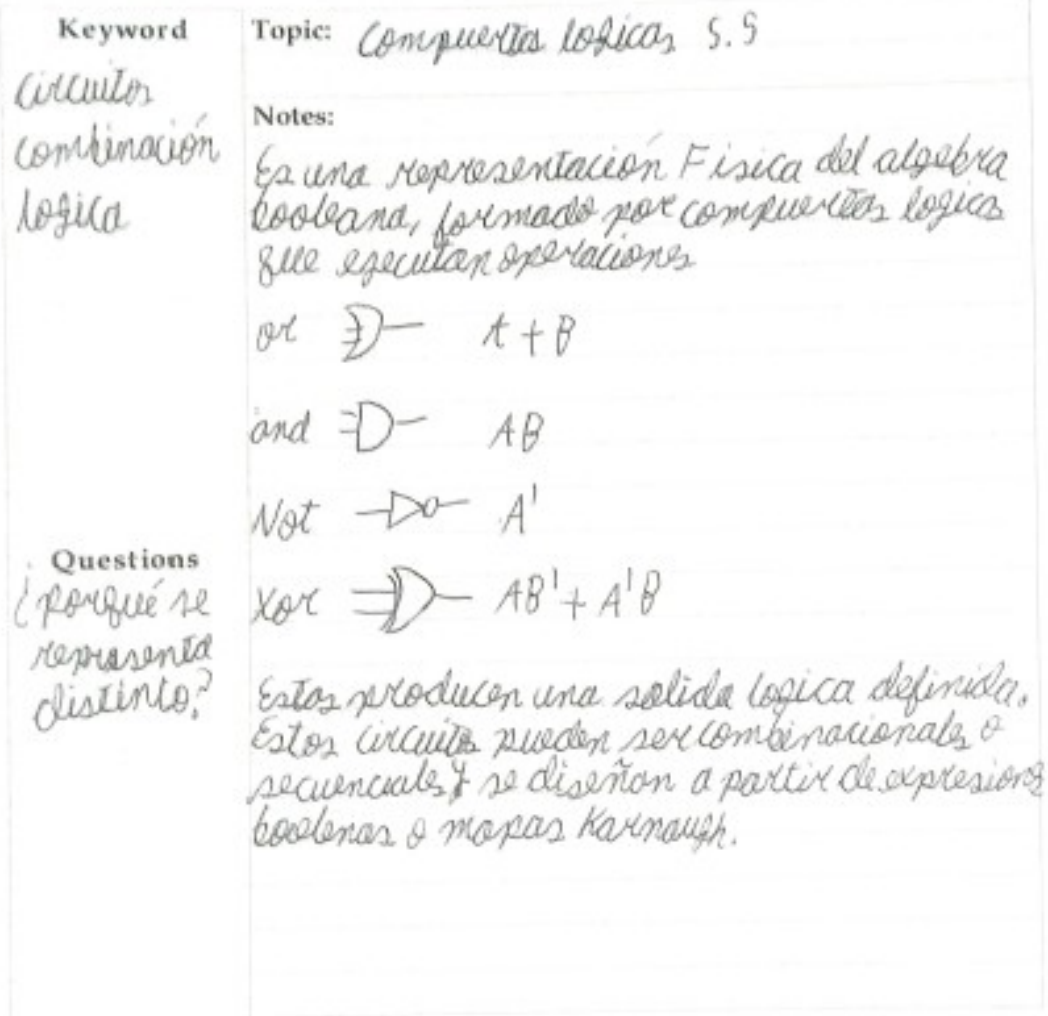 Keyword
circuitos
combinación
logica
Questions
¿porqué se
representa
distinto?
Topic: Compuertas logicas 5.5
Notes:
Es una representación Fisica del algebra
booleana, formado por compuertas logicas
que ejecutan operaciones
or A + B
and AB
Not A'
xor AB' + A'B
Estos producen una salida logica definida.
Estos circuitos pueden ser combinacionales o
secuenciales y se diseñan a partir de expresions
boolenas o mapas Karnaugh.